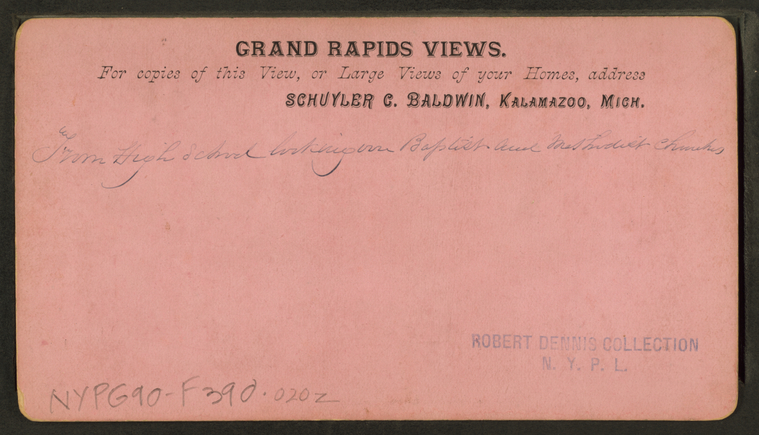 GRAND RAPIDS VIEWS.
For copies of this View, or Large Views of your Homes, address
SCHUYLER C. BALDWIN, KALAMAZOO, MICH.
From High School looking over Baptist and Methodist Churches
ROBERT DENNIS COLLECTION
N. Y. P. L.
NYPG90-F390.020z